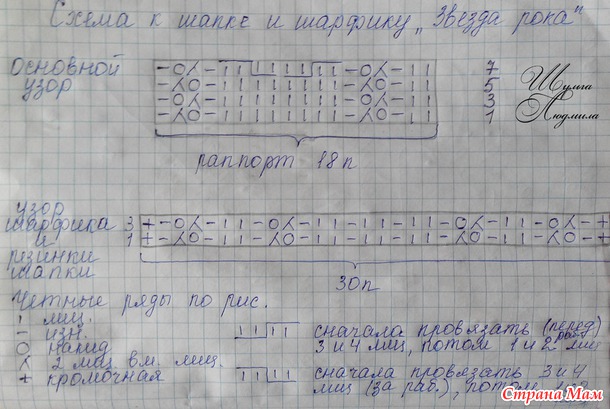 Схема к шапке и шарфику „Звезда рока"
основной узор
- O λ - I I I I I I I I - O λ - I I 7
- λ O - I I I I I I I I - λ O - I I 5
- O λ - I I I I I I I I - O λ - I I 3
- λ O - I I I I I I I I - λ O - I I 1
Шулга
Людмила
раппорт 18п
узор шарфика и резинки шапки
3 + - O λ - I I - O λ - I I - I I - I I - O λ - I I - O λ - +
1 + - λ O - I I - λ O - I I - I I - I I - λ O - I I - λ O - +
30п
Четные ряды по рис.
I лиц.
- изн.
O накид
λ 2 лиц вм. лиц.
+ кромочная
I I I I сначала провязать (перед раб.) 3 и 4 лиц, потом 1 и 2 лиц
I I I I сначала провязать 3 и 4 лиц (за раб.), потом 1 и 2
Страна Мам